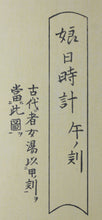 娘日時計 午ノ刻
古代者女湯以甲刻
當此圖